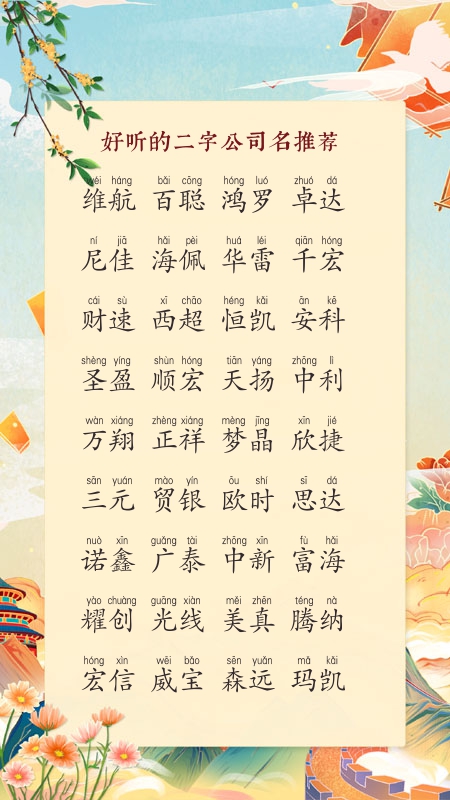 好听的二字公司名推荐
wéi háng bǎi cōng hóng luó zhuó dá
维航 百聪 鸿罗 卓达
ní jiā hǎi pèi huá léi qiān hóng
尼佳 海佩 华雷 千宏
cái sù xī chāo héng kǎi ān kē
财速 西超 恒凯 安科
shèng yíng shùn hóng tiān yáng zhōng lì
圣盈 顺宏 天扬 中利
wàn xiáng zhèng xiáng mèng jīng xīn jié
万翔 正祥 梦晶 欣捷
sān yuán mào yín ōu shí sī dá
三元 贸银 欧时 思达
nuò xīn guǎng tài zhōng xīn fù hǎi
诺鑫 广泰 中新 富海
yào chuàng guāng xiàn měi zhēn téng nà
耀创 光线 美真 腾纳
hóng xìn wēi bǎo sēn yuǎn mǎ kǎi
宏信 威宝 森远 玛凯